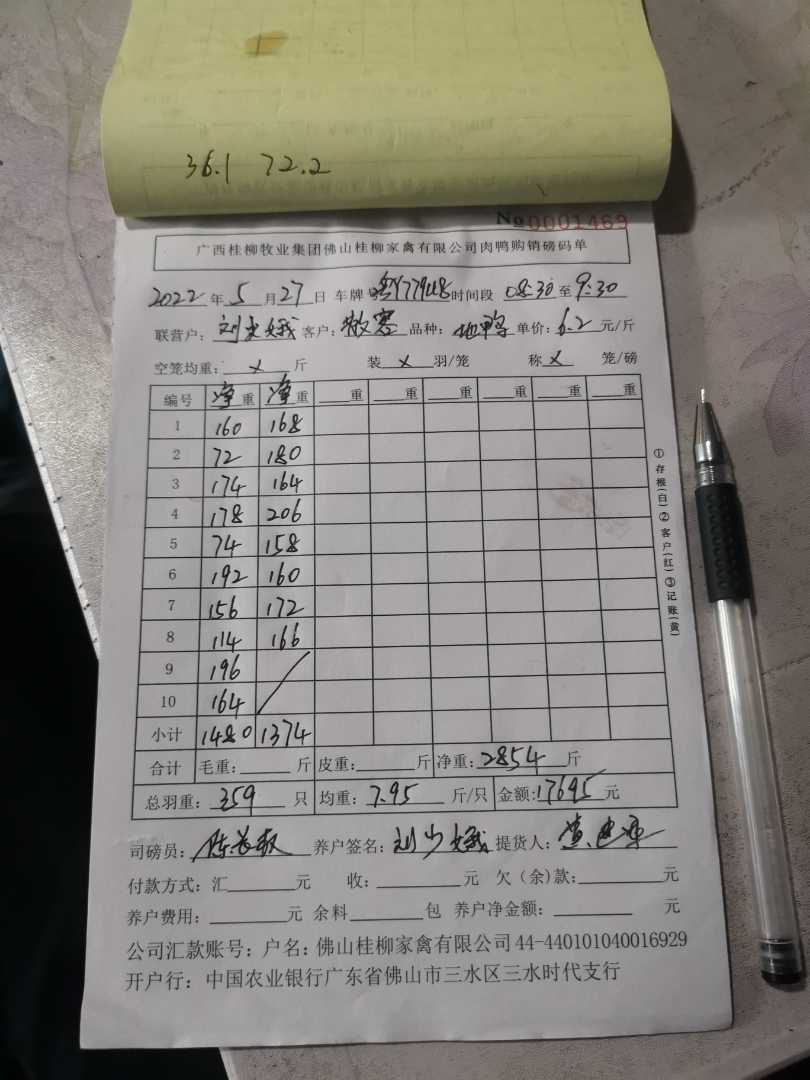 36.1 72.2
No 0001469
广西桂柳牧业集团佛山桂柳家禽有限公司肉鸭购销磅码单
2022年5月27日 车牌号 77948 时间段 08:30至9:30
联营户：刘少娥 客户：散客 品种： 单价：6.2元/斤
空笼均重：x斤 装x羽/笼 称x笼/磅
编号 净重 净重 重 重 重 重 重 重
1 160 168
2 72 180
3 174 164
4 178 206
5 74 158
6 192 160
7 156 172
8 114 166
9 196
10 164
小计 1480 1374
合计 毛重： 斤 皮重： 斤 净重：2854斤
总羽重：359只 均重：7.95斤/只 金额：17695元
司磅员： 养户签名：刘少娥 提货人：
付款方式：汇 元 收： 元 欠（余）款： 元
养户费用： 元 余料 包 养户净金额： 元
公司汇款账号；户名：佛山桂柳家禽有限公司 44-440101040016929
开户行：中国农业银行广东省佛山市三水区三水时代支行
①存根(白)②客户(红)③记账(黄)